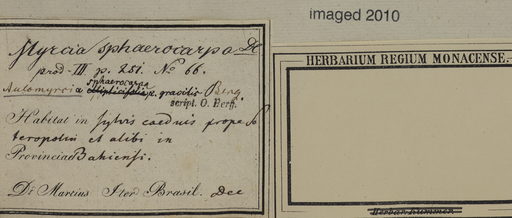 imaged 2010
Myrcia sphaerocarpa DC
prod. III p. 251. No 66.
sphaerocarpa
Aulomyrcia ellipticifolia v. gracilis Berg
script. O. Berg.
Habitat in sylvis caeduis prope So
teropolin et alibi in
Provincia Bahiensi.
Dr Martius Iter Brasil. Dec
HERBARIUM REGIUM MONACENSE.
Herbar. Kummer.